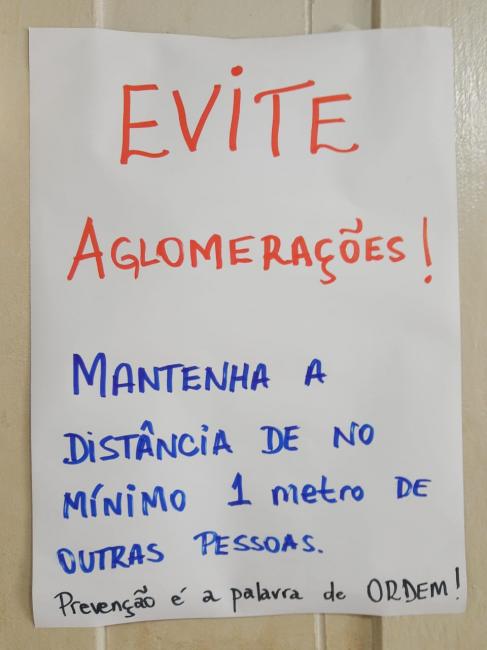 EViTE
AGLOMERAÇÕES!
MANTENHA A
DiSTÂNCiA DE NO
MÍNiMO 1 metro DE
OUTRAS PESSOAS.
Prevenção é a palavra de ORDEM!